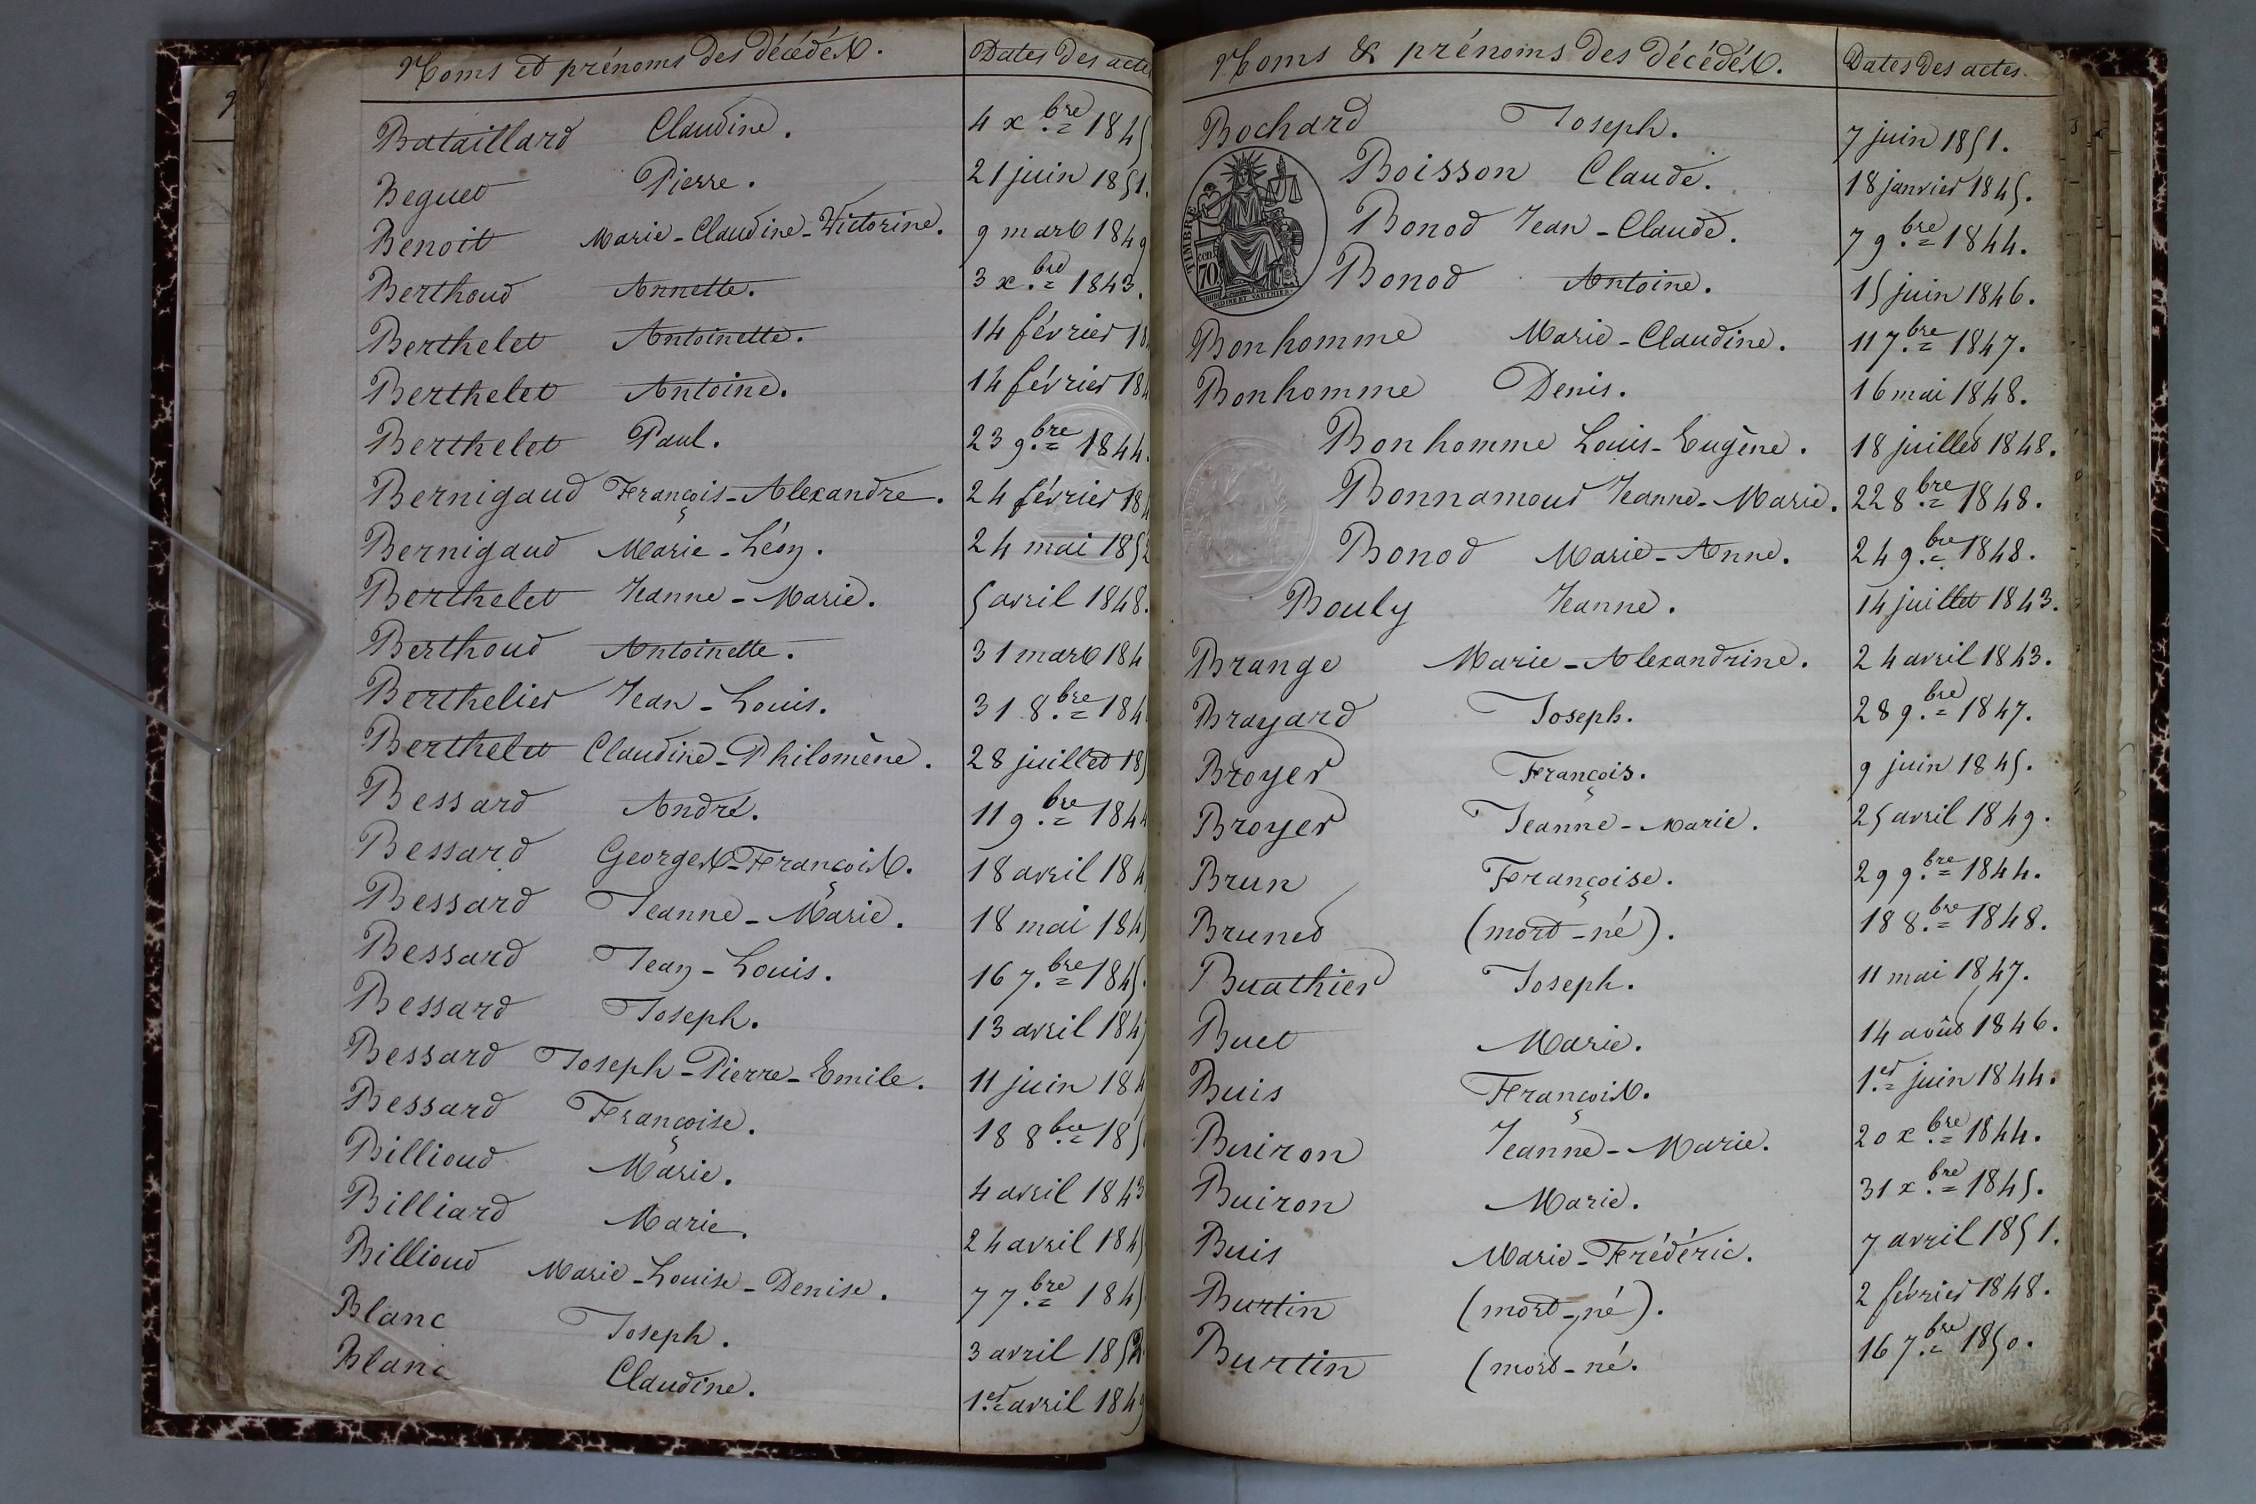 Noms et prénoms des décédés. Dates des actes
Bataillard Claudine. 4 xbre 1845
Beguet Pierre. 21 juin 1851.
Benoit Marie-Claudine-Victorine. 9 mars 1849
Berthoud Annette. 3 xbre 1843.
Berthelet Antoinette. 14 février 18
Berthelet Antoine. 14 février 184
Berthelet Paul. 23 9bre 1844.
Bernigaud François-Alexandre. 24 février 18
Bernigaud Marie-Léon. 24 mai 1852
Berthelet Jeanne-Marie. 5 avril 1848.
Berthoud Antoinette. 31 mars 184
Berthelier Jean-Louis. 31 8bre 184
Berthelet Claudine-Philomène. 28 juillet 185
Bessard André. 11 9bre 1844
Bessard Georges-François. 18 avril 184
Bessard Jeanne-Marie. 18 mai 184
Bessard Jean-Louis. 16 7bre 1845.
Bessard Joseph. 13 avril 184
Bessard Joseph-Pierre-Emile. 11 juin 184
Bessard Françoise. 18 8bre 185
Billioud Marie. 4 avril 1843
Billiard Marie. 24 avril 184
Billioud Marie-Louise-Denise. 7 7bre 184
Blanc Joseph. 3 avril 1852
Blanc Claudine. 1er avril 184
Noms & prénoms des décédés. Dates des actes.
Bochard Joseph. 7 juin 1851.
Boisson Claude. 18 janvier 1845.
Bonod Jean-Claude. 7 9bre 1844.
TIMBRE
70
Bonod Antoine. 15 juin 1846.
Bonhomme Marie-Claudine. 11 7bre 1847.
Bonhomme Denis. 16 mai 1848.
Bonhomme Louis-Eugène. 18 juillet 1848.
Bonnamour Jeanne-Marie. 22 8bre 1848.
Bonod Marie-Anne. 24 9bre 1848.
Bouly Jeanne. 14 juillet 1843.
Brange Marie-Alexandrine. 24 avril 1843.
Brayard Joseph. 28 9bre 1847.
Broyer François. 9 juin 1845.
Broyer Jeanne-Marie. 25 avril 1849.
Brun Françoise. 29 9bre 1844.
Brunet (mort-né). 18 8bre 1848.
Buathier Joseph. 11 mai 1847.
Buet Marie. 14 août 1846.
Buis François. 1er juin 1844.
Buiron Jeanne-Marie. 20 xbre 1844.
Buiron Marie. 31 xbre 1845.
Buis Marie-Frédéric. 7 avril 1851.
Burtin (mort-né). 2 février 1848.
Burtin (mort-né. 16 7bre 1850.